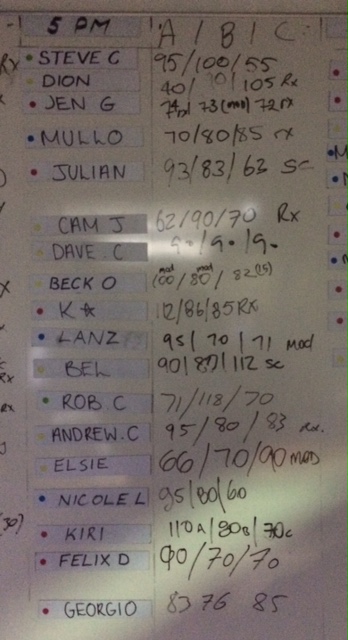 5 PM A / B / C
STEVE C 95/100/55
DION 40/ 70/ 105 Rx
JEN G 73 (mod) 72 rx
MULLO 70/80/85 rx
JULIAN 93/83/63 SC
CAM J 62/90/70 Rx
DAVE.C
BECK O mod mod 100/ 80/
K☆ 112/86/85 RX
LANZ 95/ 70 / 71 mod
BEL 90/ 87/ 112 SC
ROB.C 71/118/ 70
ANDREW.C 95/ 80 / 83 Rx.
ELSIE 66/70/90 MOD
NICOLE L 95/80/60
KIRI 110A/ 90B/ 70c
FELIX D 90/70/70
GEORGIO 83 76 85